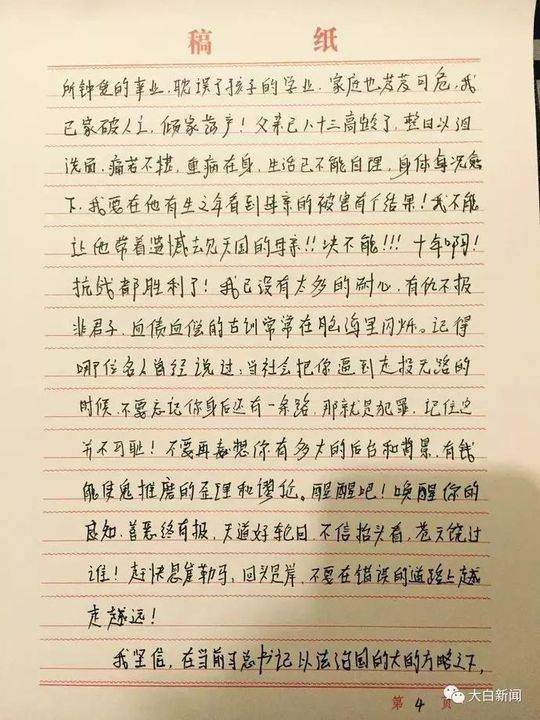 稿 纸
所钟爱的事业,耽误了孩子的学业,家庭也岌岌可危,我
已家破人亡,倾家荡产!父亲已八十三高龄了,整日以泪
洗面,痛苦不堪,重病在身,生活已不能自理,身体每况愈
下,我要在他有生之年看到母亲的被害有个结果!我不能
让他带着遗憾去见天国的母亲!!决不能!!!十年啊!
抗战都胜利了!我已没有太多的耐心,有仇不报
非君子,血债血偿的古训常常在脑海里闪烁。记得
哪位名人曾经说过:当社会把你逼到走投无路的
时候,不要忘记你身后还有一条路,那就是犯罪,记住这
并不可耻!不要再毒想你有多大的后台和背景,有钱
能使鬼推磨的歪理和谬论。醒醒吧!唤醒你的
感知,善恶终有报,天道好轮回,不信抬头看,苍天饶过
谁!赶快悬崖勒马,回头是岸,不要在错误的道路上越
走越远!
我坚信,在当前习总书记以法治国的大的方略之下,
第 4 页
大白新闻